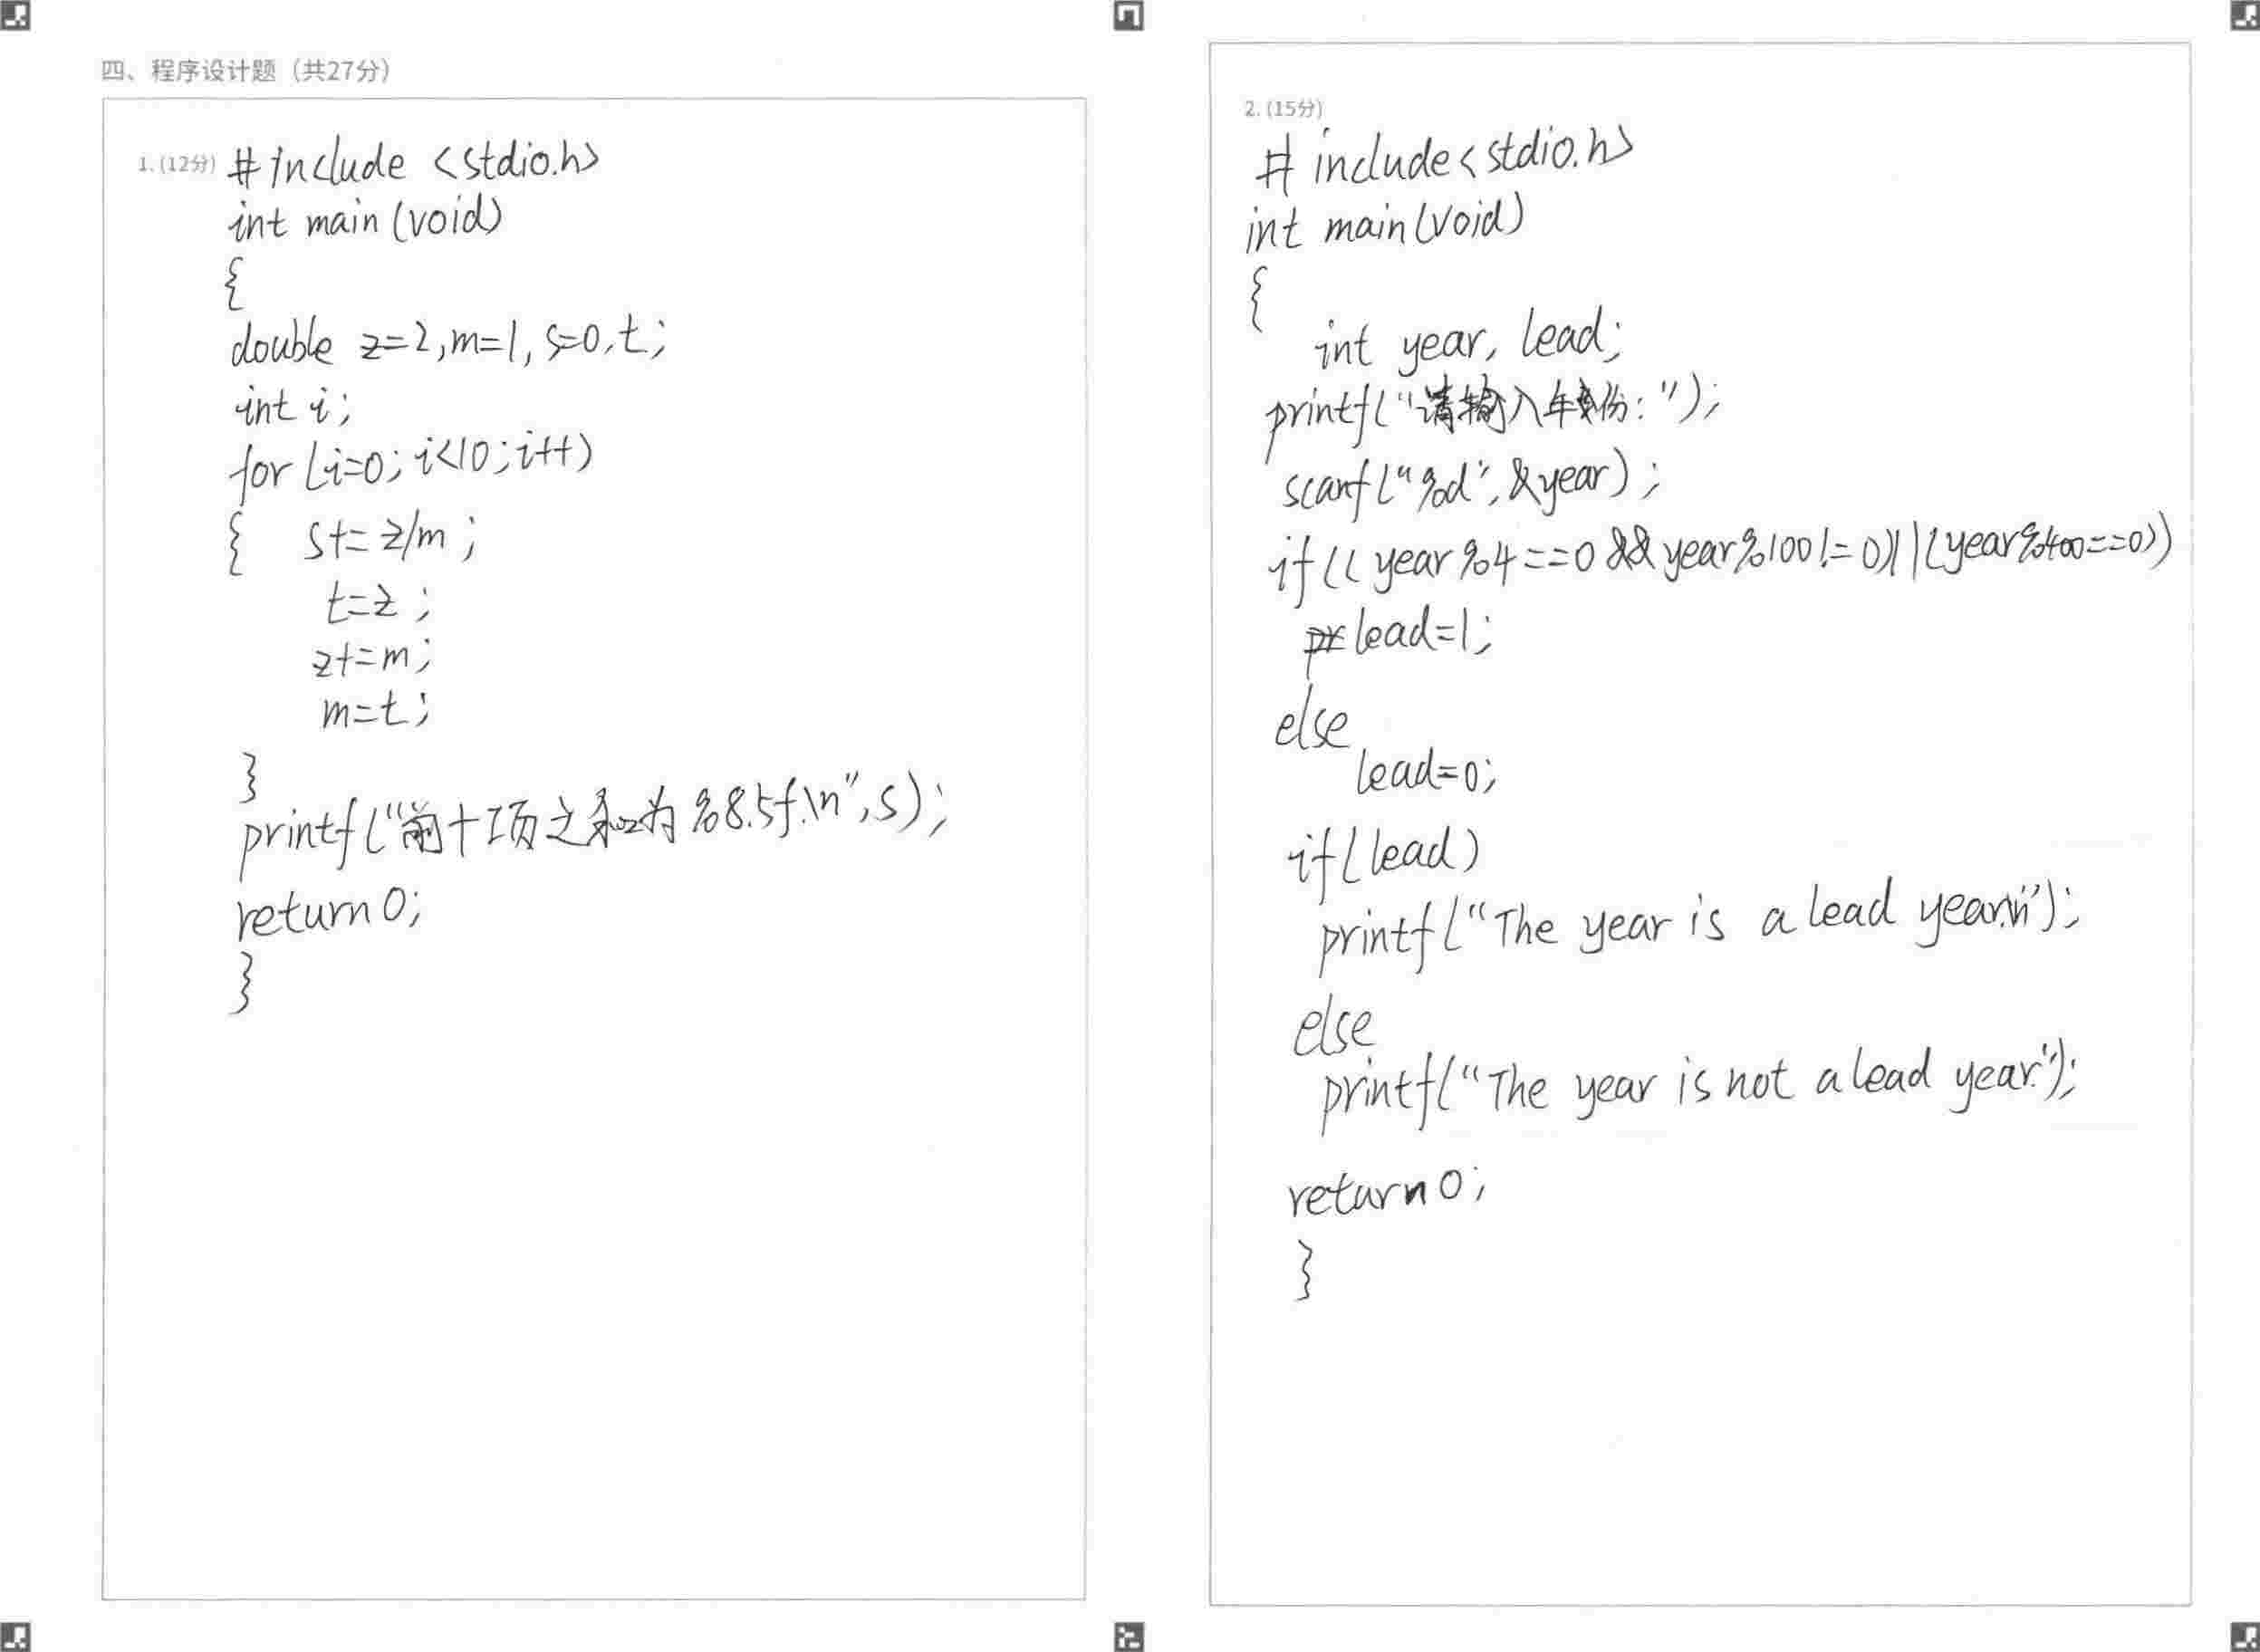 四、程序设计题（共27分）
1. (12分) #include <stdio.h>
int main (void)
{
double z=2,m=1,s=0,t;
int i;
for (i=0; i<10; i++)
{ s+=z/m;
t=z;
z+=m;
m=t;
}
printf("前十项之和为%8.5f.\n",s);
return 0;
}
2. (15分)
# include<stdio.h>
int main(void)
{
int year, lead;
printf("请输入年份:");
scanf("%d",&year);
if(( year%4==0 && year%100!=0)||(year%400==0))
lead=1;
else
lead=0;
if(lead)
printf("The year is a lead year.\n");
else
printf("The year is not a lead year.");
return 0;
}